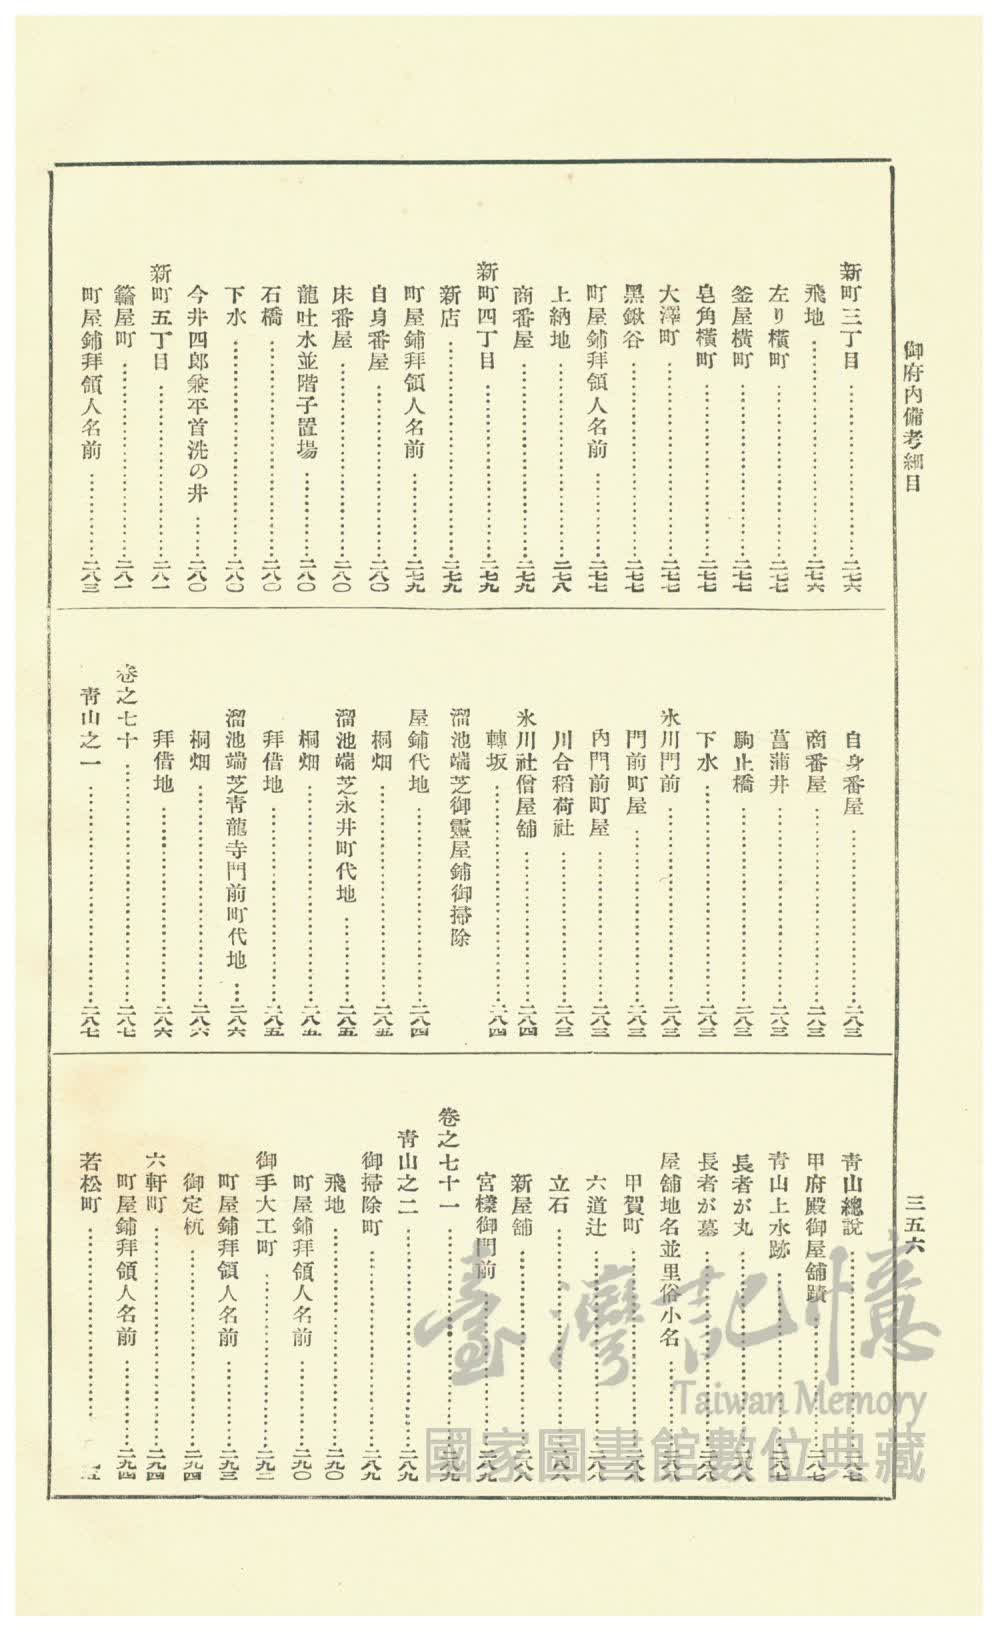 御府内備考細目
三五六
新町三丁目……二七六
飛地……二七六
左り橫町……二七七
釜屋橫町……二七七
皂角橫町……二七七
大澤町……二七七
黑鍬谷……二七七
町屋鋪拜領人名前……二七七
上納地……二七八
商番屋……二七九
新町四丁目……二七九
新店……二七九
町屋鋪拜領人名前……二七九
自身番屋……二八〇
床番屋……二八〇
龍吐水並階子置場……二八〇
石橋……二八〇
下水……二八〇
今井四郎兼平首洗の井……二八〇
新町五丁目……二八一
籠屋町……二八一
町屋鋪拜領人名前……二八三
自身番屋……二八三
商番屋……二八三
菖蒲井……二八三
駒止橋……二八三
下水……二八三
氷川門前……二八三
門前町屋……二八三
內門前町屋……二八三
川合稻荷社……二八三
氷川社僧屋舖……二八四
轉坂……二八四
溜池端芝御靈屋鋪御掃除
屋鋪代地……二八四
桐畑……二八五
溜池端芝永井町代地……二八五
桐畑……二八五
拜借地……二八五
溜池端芝靑龍寺門前町代地……二八六
桐畑……二八六
拜借地……二八六
卷之七十……二八七
靑山之一……二八七
靑山總說……二八七
甲府殿御屋舖蹟……二八七
靑山上水跡……二八七
長者が丸……二八八
長者が墓……二八八
屋舖地名並里俗小名……二八八
甲賀町……二八八
六道辻……二八八
立石……二八八
新屋舖……二八八
宮樣御門前……二八九
卷之七十一……二八九
靑山之二……二八九
御掃除町……二八九
飛地……二九〇
町屋鋪拜領人名前……二九〇
御手大工町……二九二
町屋鋪拜領人名前……二九三
御定杭……二九四
六軒町……二九四
町屋鋪拜領人名前……二九四
若松町……
臺灣記憶
Taiwan Memory
國家圖書館數位典藏